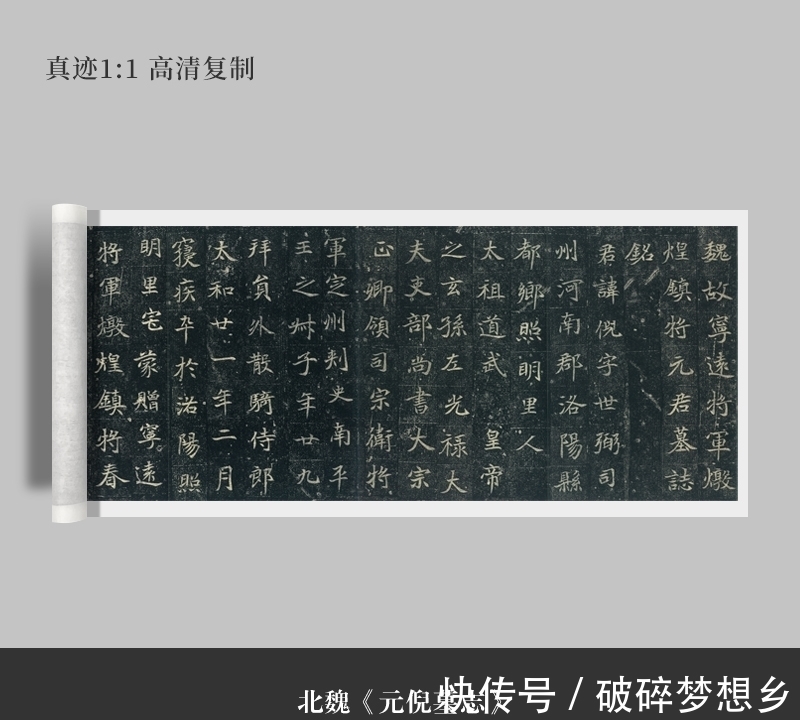 真迹1:1 高清复制
魏故寧遠將軍燉
煌鎮將元君墓誌
銘
君諱倪字世弼司
州河南郡洛陽縣
都鄉照明里人
太祖道武皇帝
之玄孫左光祿大
夫吏部尚書大宗
正卿領司宗衛將
軍定州刾史南平
王之㭰子年廿九
拜貟外散騎侍郎
太和廿一年二月
寑疾卒於洛陽照
明里宅蒙贈寧遠
將軍燉煌鎮將春
北魏《元倪墓志》
快传号 / 破碎梦想乡